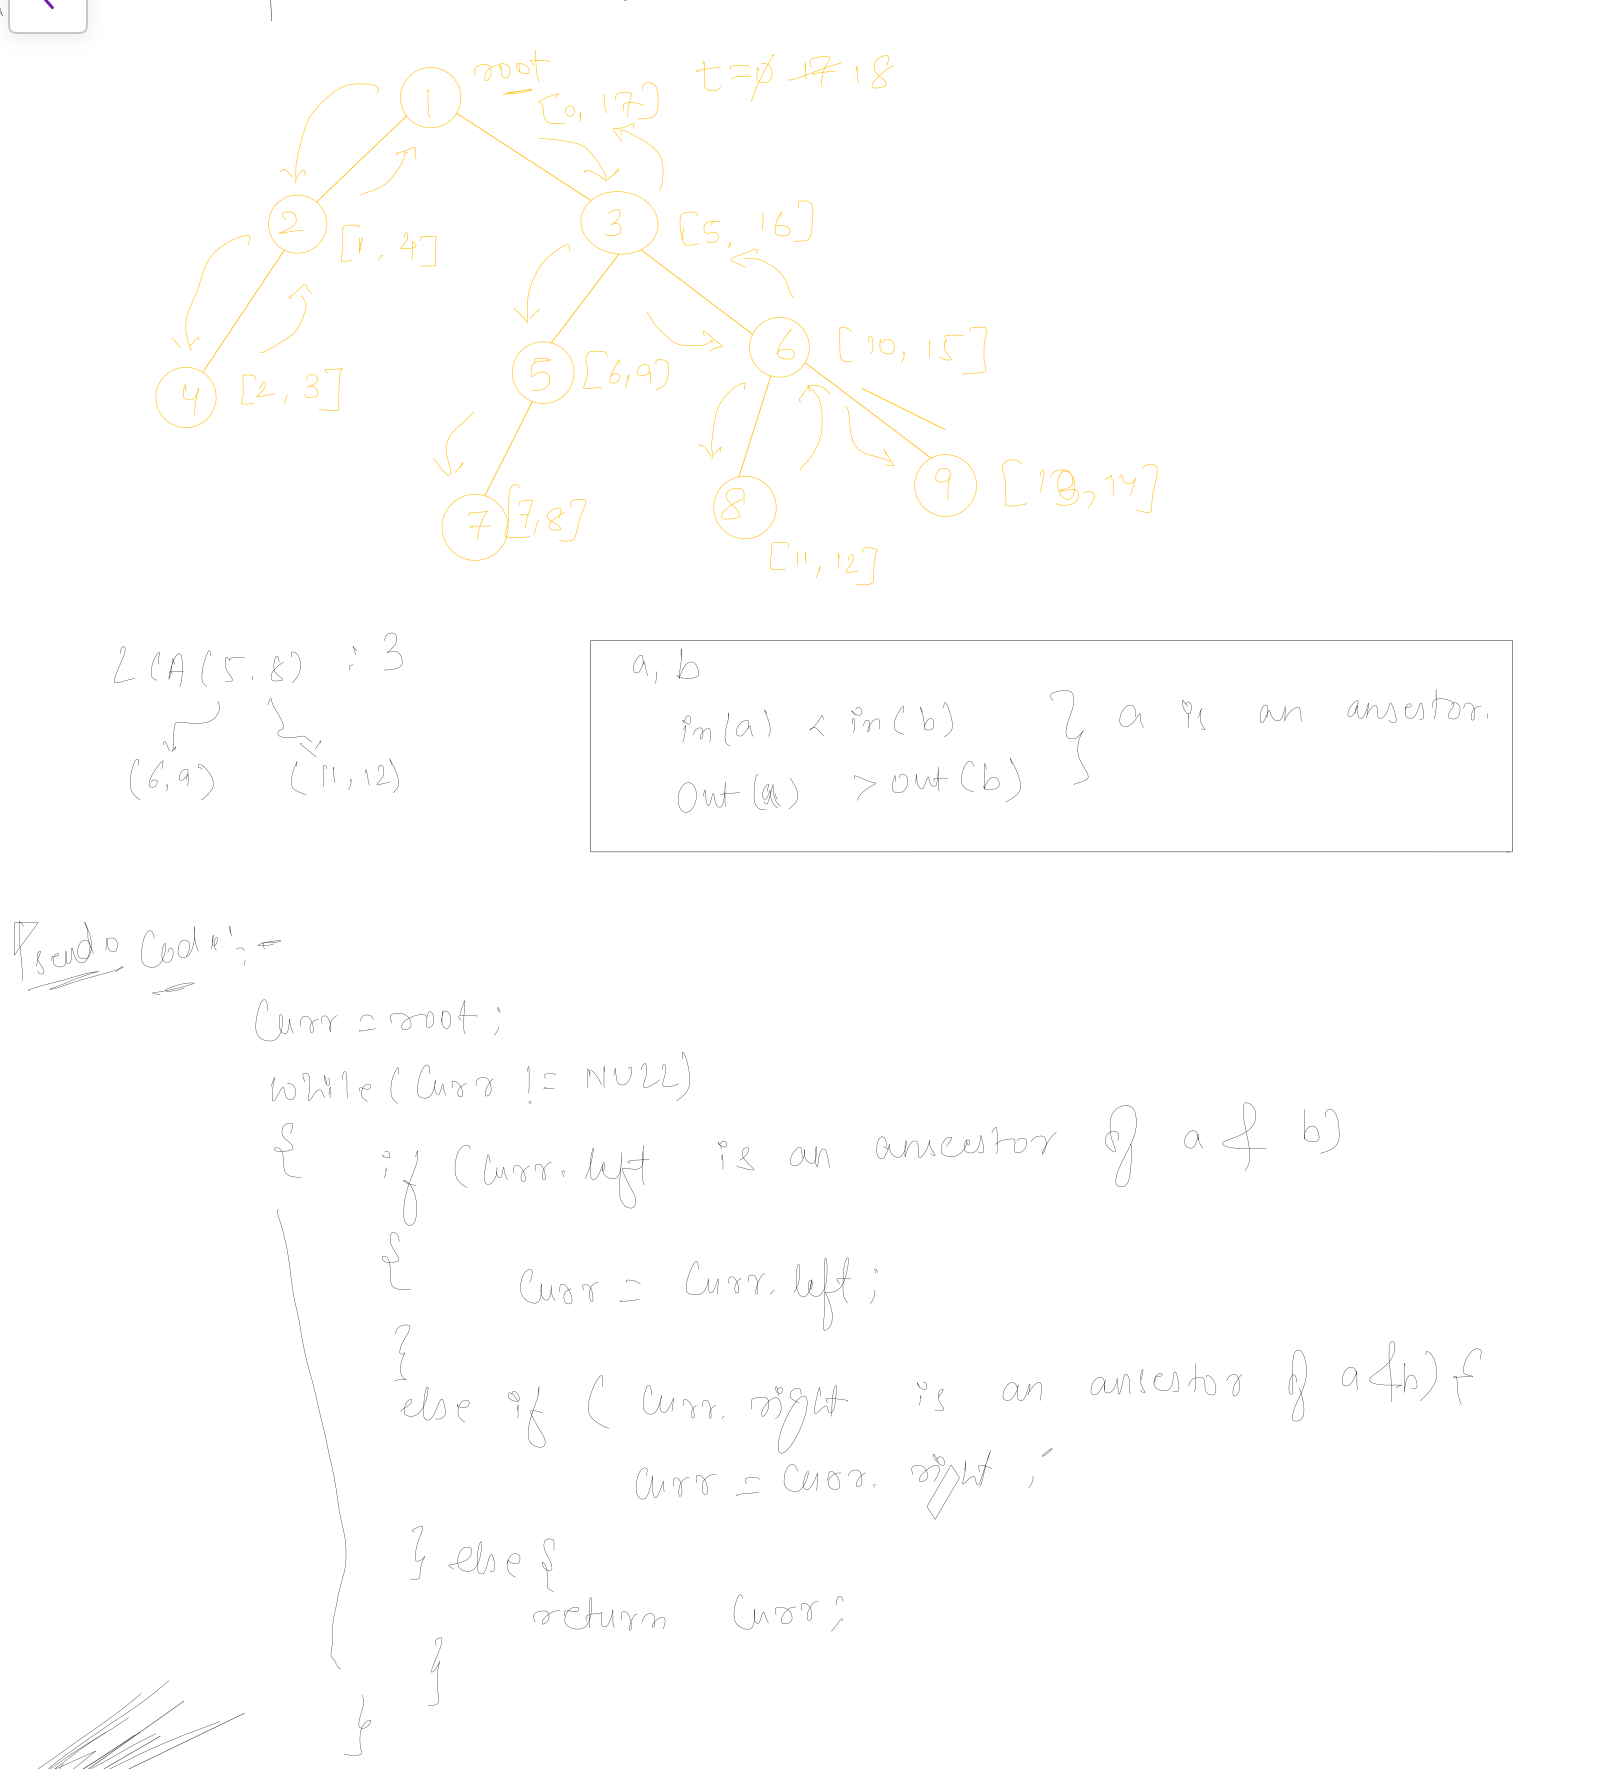 1 root t=0 17 18
[0, 17]
2 [1, 4] 3 [5, 16]
4 [2, 3] 5 [6,9) 6 [10, 15]
7 [7,8] 8 9 [13, 14]
[11, 12]
LCA(5,8) : 3
(6,9) (11,12)
a, b
in(a) < in(b) } a is an ansestor.
Out(a) > out(b)
Pseudo Code:-
Curr = root;
while(Curr != NULL)
{ if (Curr.left is an anscestor of a & b)
{ Curr = Curr.left;
}
else if ( Curr.right is an ansestor of a &b) {
Curr = Curr.right ;
} else {
return Curr;
}
}